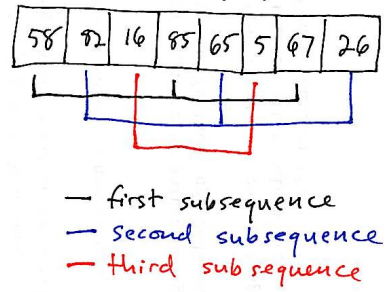 58 82 16 85 65 5 67 26
first subsequence
second subsequence
third subsequence